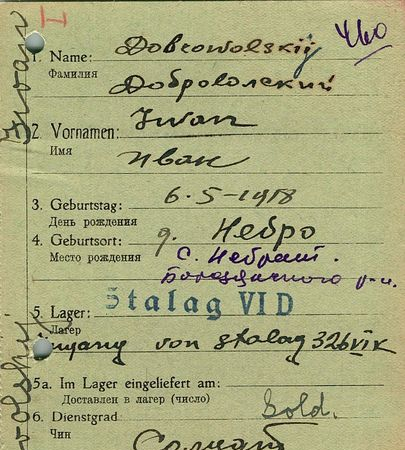 I
460
1. Name: Dobrowolskij
Фамилия Доброволский
2. Vornamen: Iwan
Имя Иван
3. Geburtstag: 6-5-1918
День рождения
4. Geburtsort: д. Небро
Место рождения с. Небрат.
Бородянского р-н.
5. Lager: Stalag VI D
Лагер
Eingang von Stalag 326 VI K
5a. Im Lager eingeliefert am:
Доставлен в лагер (число)
6. Dienstgrad Sold.
Чин Солдат
Iwan